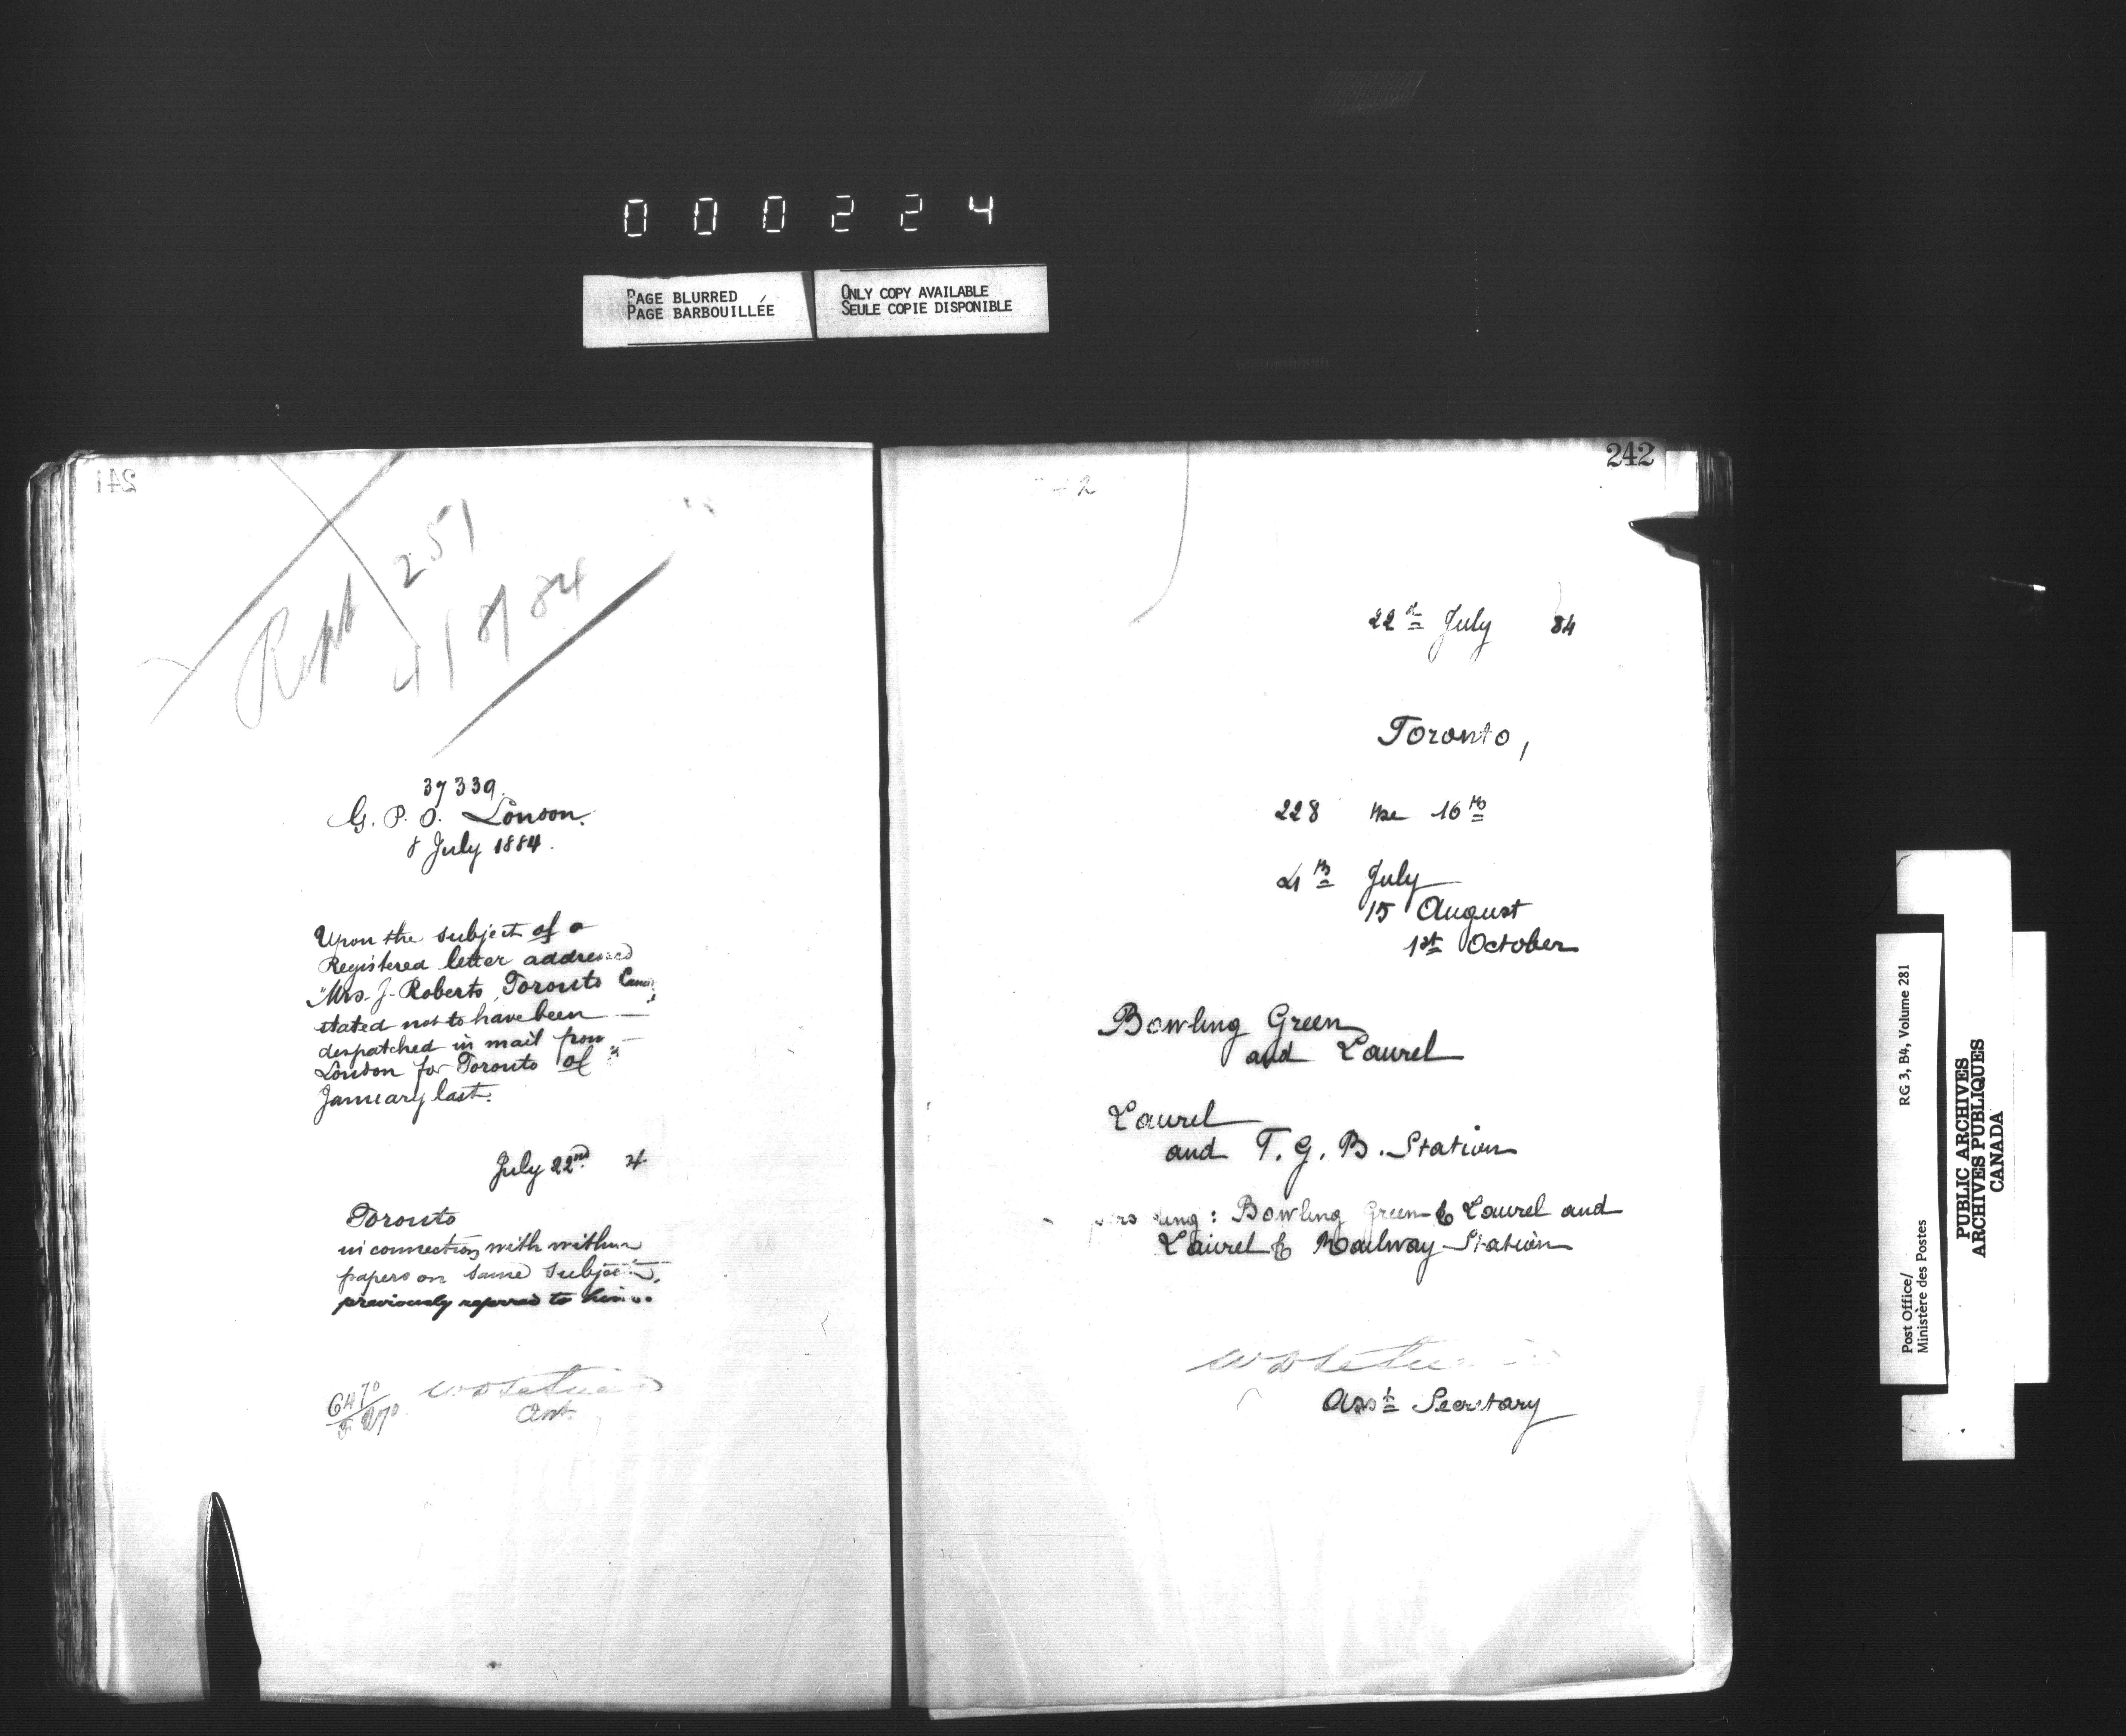 000224
PAGE BLURRED
PAGE BARBOUILLÉE
ONLY COPY AVAILABLE
SEULE COPIE DISPONIBLE
241
251
4/8/84
37339.
G. P. O. London.
8 July 1884.
Upon the subject of a
Registered letter addressed
"Mrs. J. Roberts, Toronto
stated not to have been
despatched in mail from
London for Toronto of
January last.
July 22nd 4
Toronto
in connection with within
papers on same subject,
previously referred to him.
242
22nd July 84
Toronto,
228 the 16th
4th July
15 August
1st October
Bowling Green
and Laurel
Laurel
and T. G. B. Station
Bowling Green & Laurel and
Laurel & Railway Station
Asst Secretary
Post Office/
Ministère des Postes
RG 3, B4, Volume 281
PUBLIC ARCHIVES
ARCHIVES PUBLIQUES
CANADA